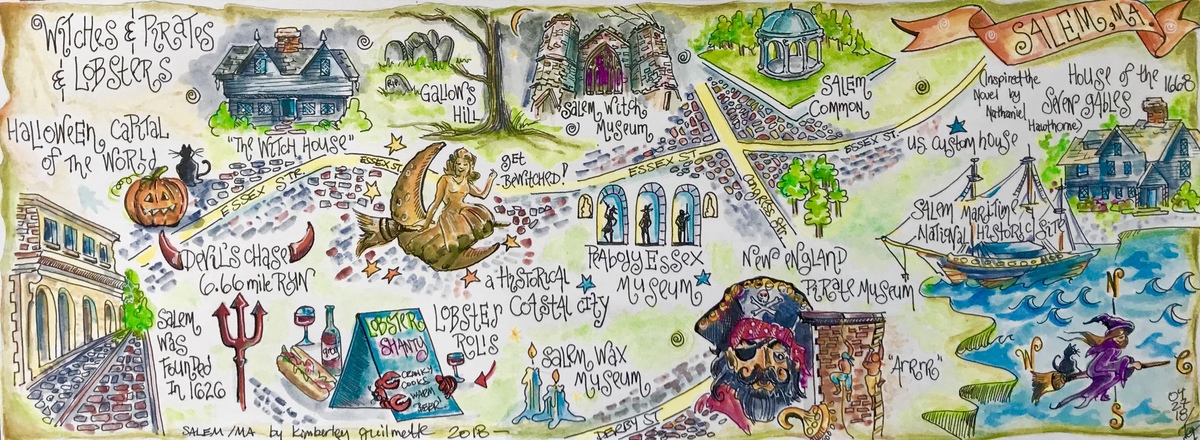 Witches & Pirates
& Lobsters
Halloween Capital
of the World
"The Witch House"
Gallow's
Hill
Salem Witch
Museum
Salem
Common
SALEM, MA.
(Inspired the
Novel by
Nathaniel
Hawthorne)
House of the 1668
Seven Gables
U.S. Custom House
Essex Str.
Essex St.
Essex St.
Essex St.
Get
Bewitched!
Congress Str.
Devil's Chase
6.66 mile Run
Peabody Essex
Museum
A Historical
Coastal City
Salem Maritime
National Historic Site
New England
Pirate Museum
Salem
was
Founded
In 1626
Lobster
Shanty
Cranky
Cooks
Warm
Beer
Lobster
Rolls
Salem Wax
Museum
"Arrrr"
Derby St
N
W
E
S
SALEM/MA by Kimberley Guilmette 2018